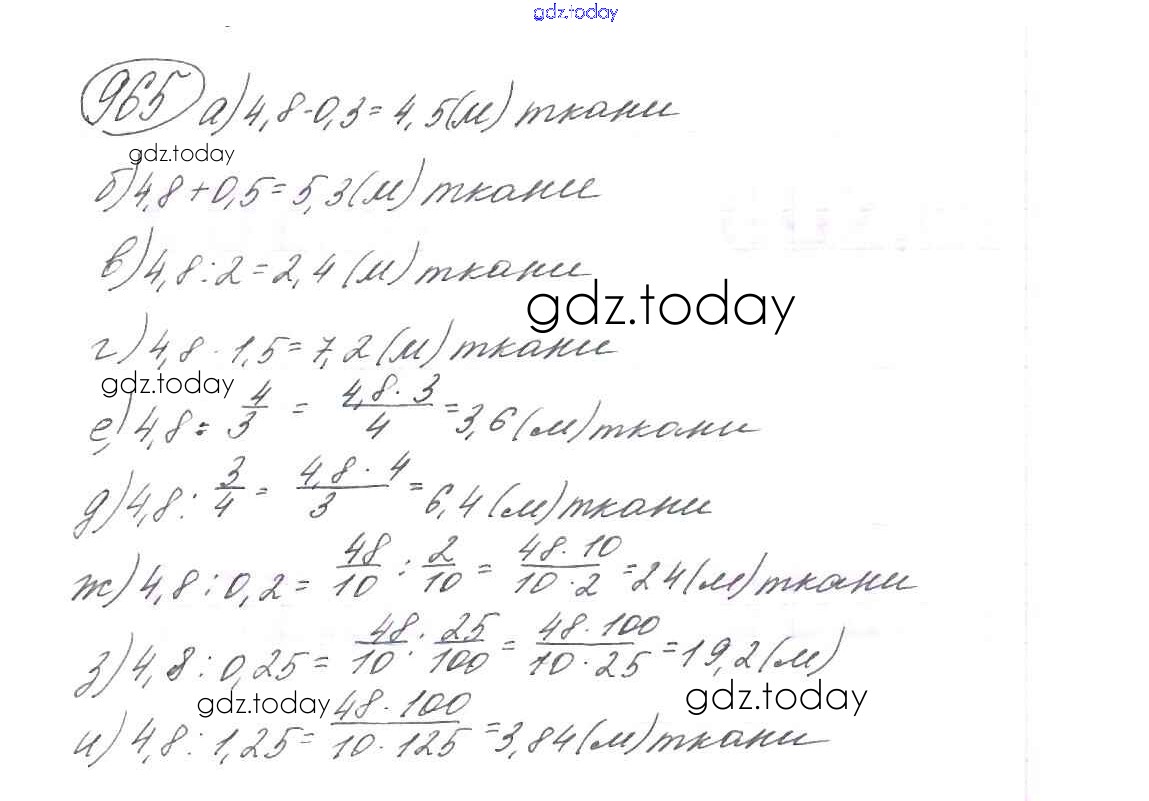 gdz.today
965 а) 4,8-0,3=4,5(м) ткани
gdz.today
б) 4,8+0,5=5,3(м) ткани
в) 4,8:2=2,4(м) ткани
gdz.today
г) 4,8·1,5=7,2(м) ткани
gdz.today
е) 4,8 : 4/3 = 4,8·3/4 = 3,6(м) ткани
д) 4,8 : 3/4 = 4,8·4/3 = 6,4(м) ткани
ж) 4,8 : 0,2 = 48/10 : 2/10 = 48·10/10·2 = 24(м) ткани
з) 4,8 : 0,25 = 48/10 : 25/100 = 48·100/10·25 = 19,2(м)
gdz.today
gdz.today
и) 4,8 : 1,25 = 48·100/10·125 = 3,84(м) ткани